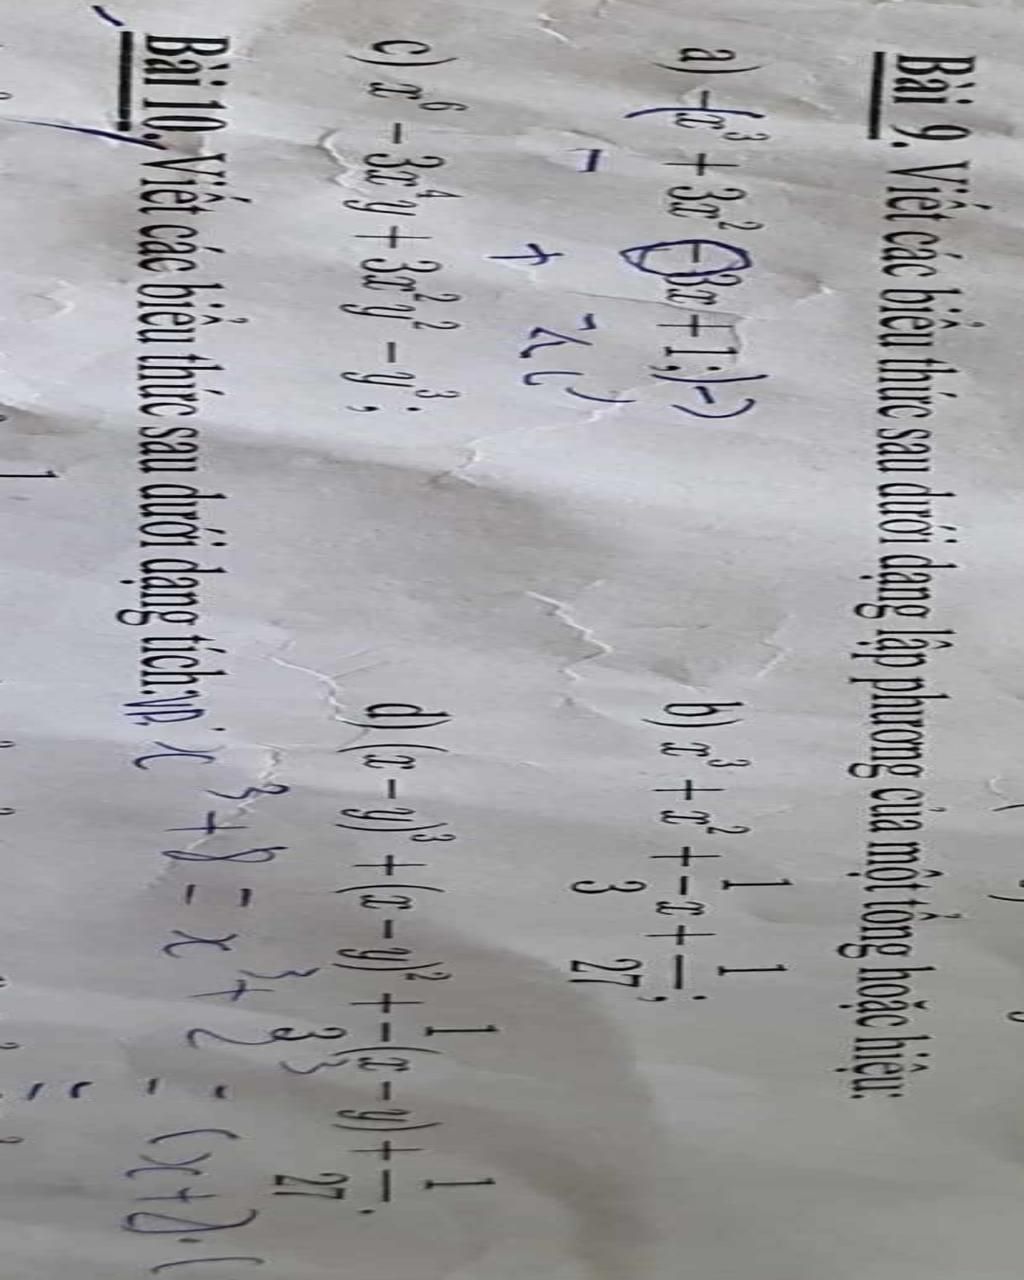 Bài 9. Viết các biểu thức sau dưới dạng lập phương của một tổng hoặc hiệu:
a) -(x³ + 3x² - 3x + 1;)
b) x³ + x² + 1/3 x + 1/27;
c) x⁶ - 3x⁴y + 3x²y² - y³;
d) (x - y)³ + (x - y)² + 1/3 (x - y) + 1/27.
Bài 10. Viết các biểu thức sau dưới dạng tích: VD: x³ + 8 = x³ + 2³
= (x + 2). (